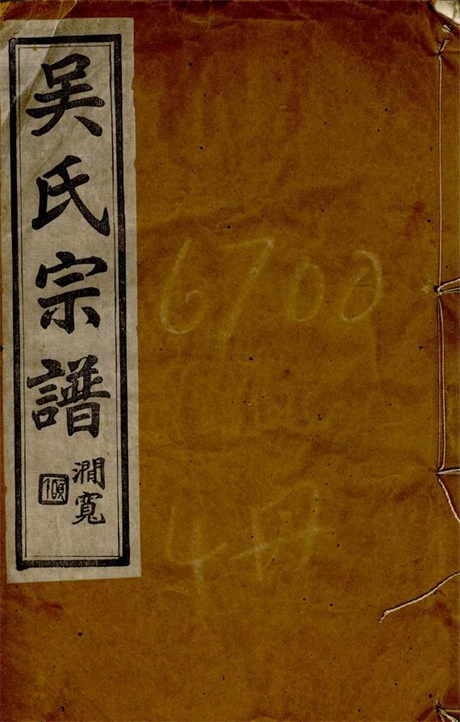 吳氏宗譜
澗寬
6700
4冊